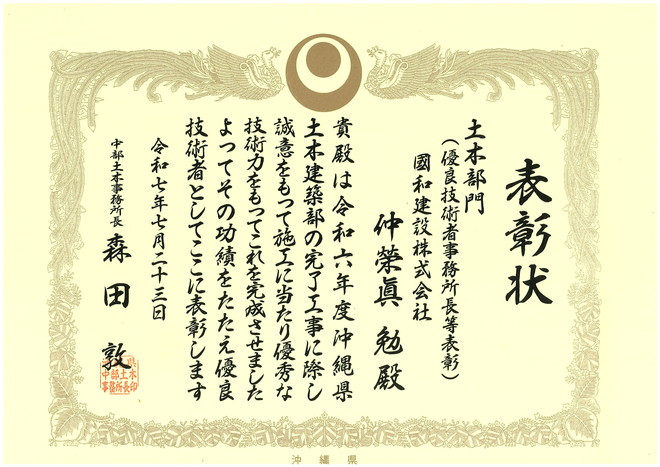 表彰状
土木部門
(優良技術者事務所長等表彰)
國和建設株式会社
仲榮眞 勉殿
貴殿は令和六年度沖縄県
土木建築部の完了工事に際し
誠意をもって施工に当たり優秀な
技術力をもってこれを完成させました
よってその功績をたたえ優良
技術者としてここに表彰します
令和七年七月二十三日
中部土木事務所長 森田 敦
中部土木
事務所長印
沖縄県